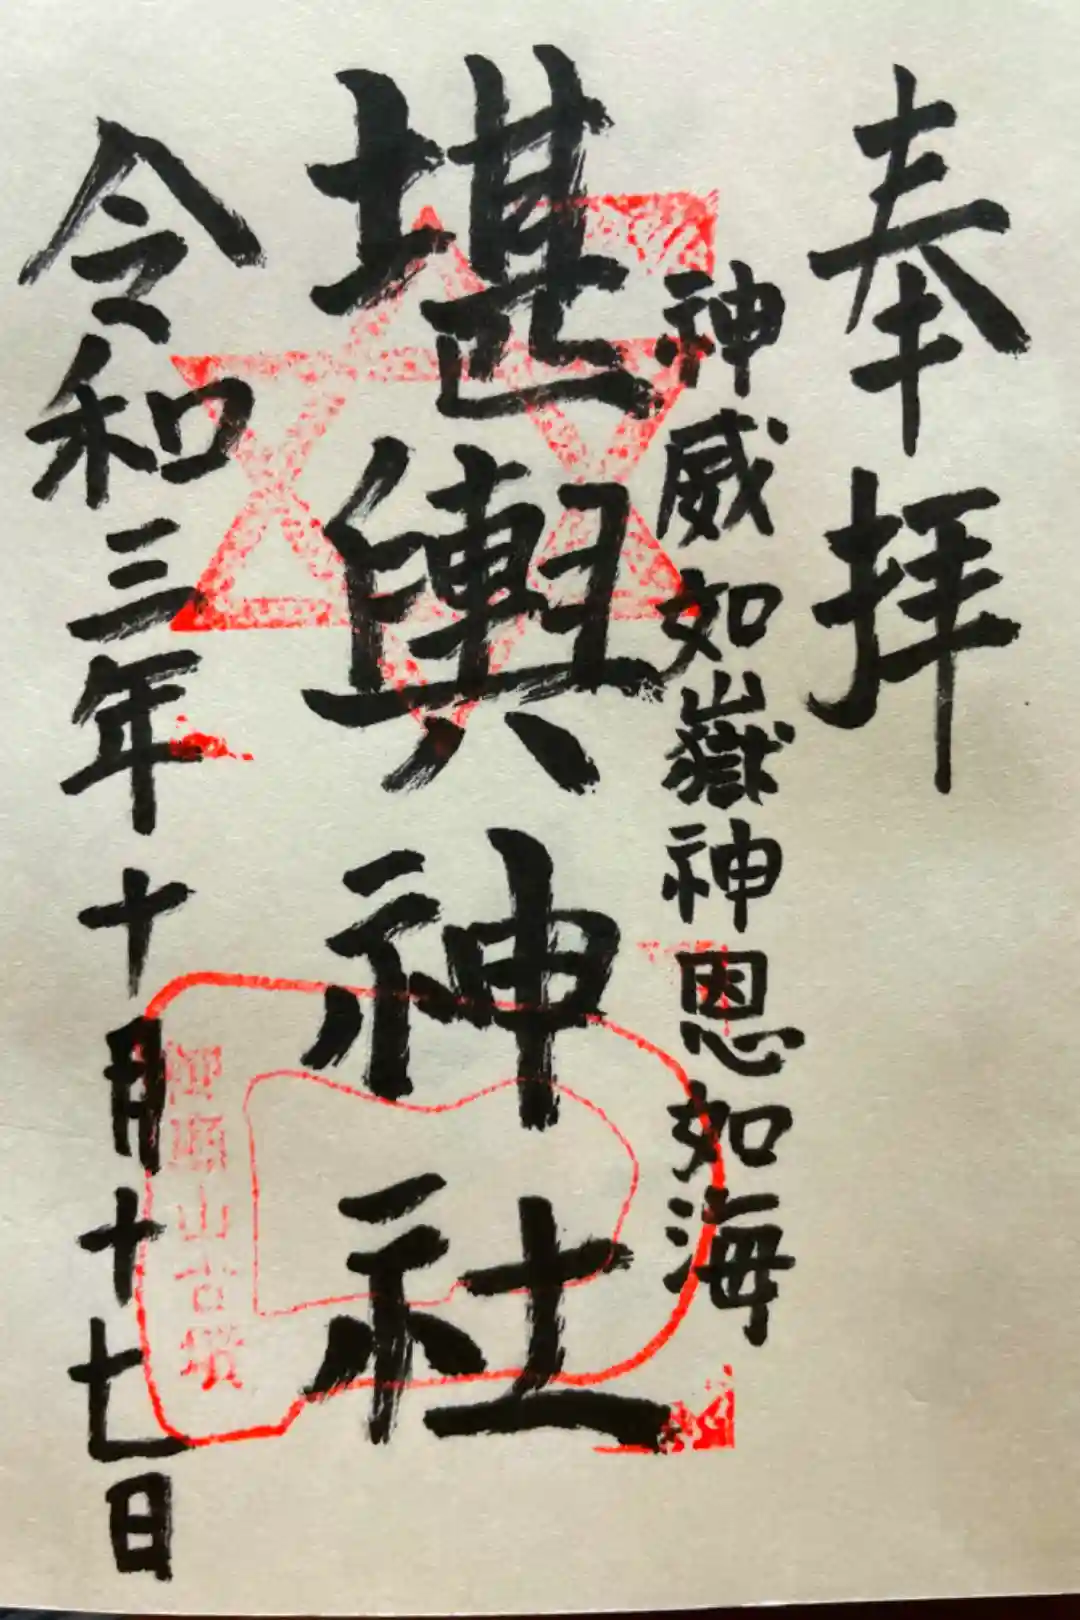 奉拝
神威如嶽神恩如海
堪輿神社
令和三年十月十七日
御願山古墳